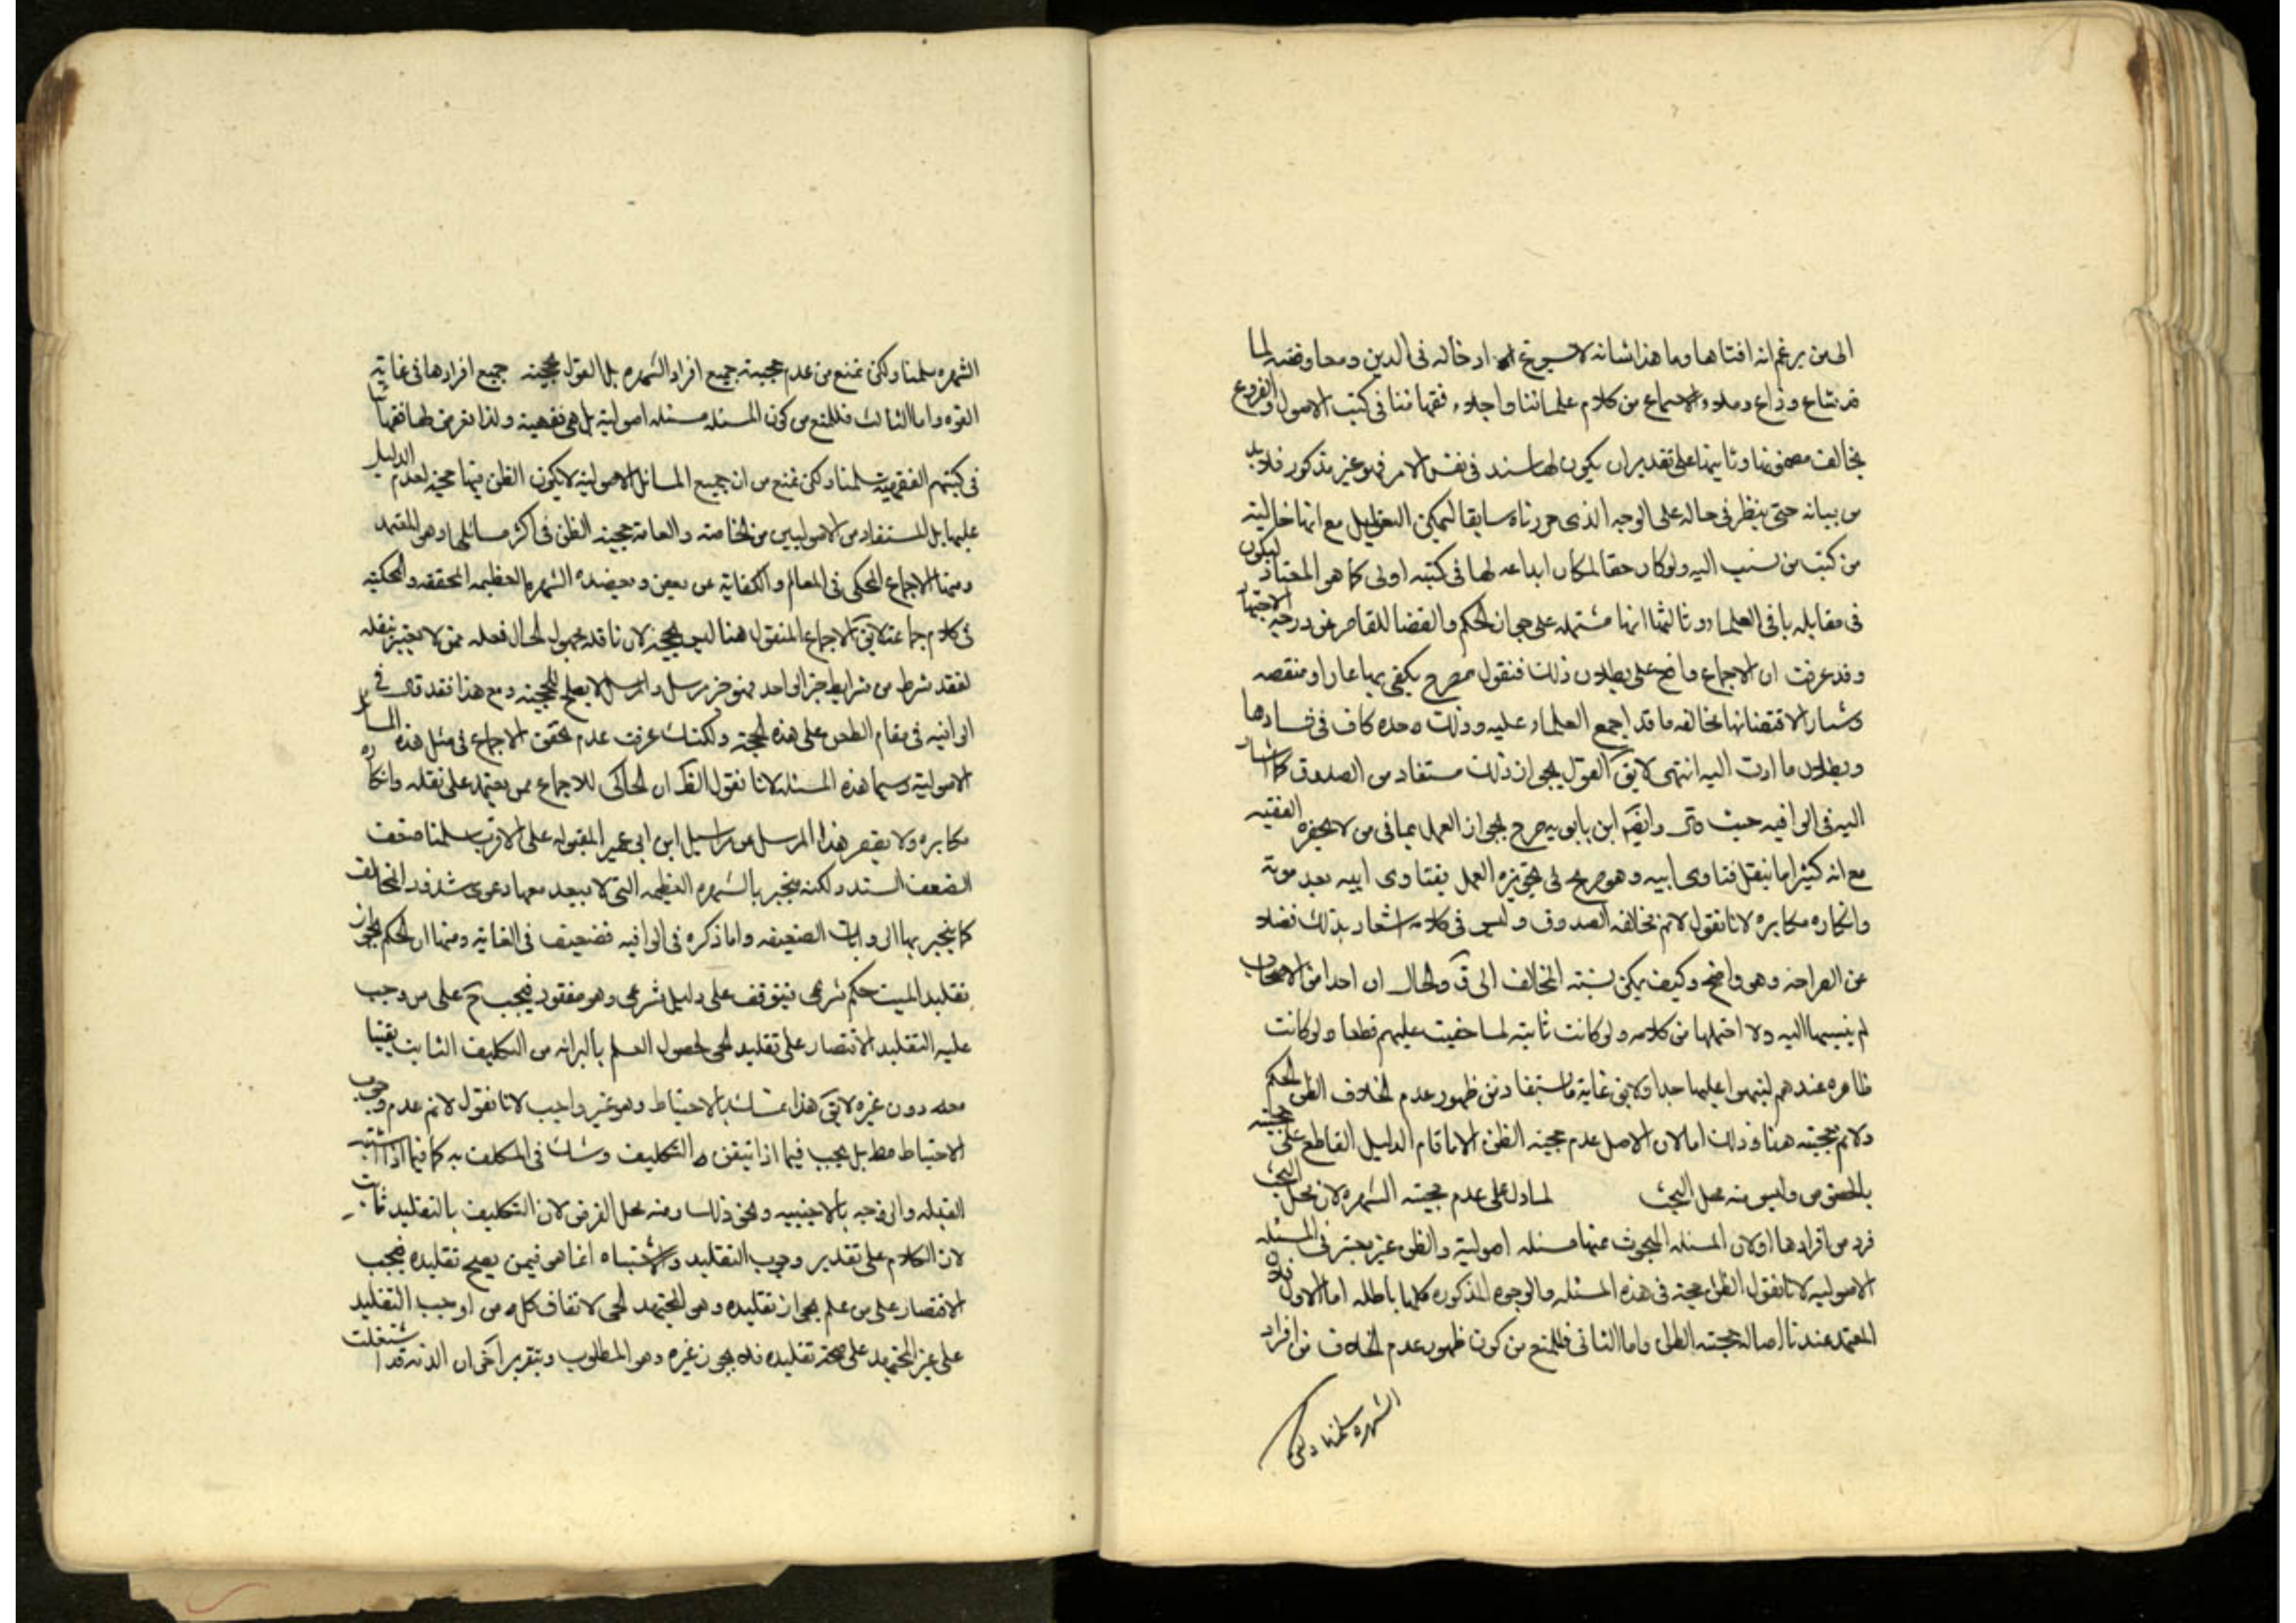 الى من يزعم انه افتاها وما هذا شانه لا يسوغ ادخاله في الدين ومعاوضته لما
قد شاع وذاع وملاء الاسماع من كلام علمائنا واجلاء فقهائنا في كتب الاصول والفروع
يخالف مضمونها وثانيها على تقدير ان يكون لها سند في نفس الامر فهو غير مذكور فلابد
من بيانه حتى ينظر في حاله على الوجه الذي حررناه سابقا ليمكن التعويل مع انها خالية
من كتب من نسب اليه ولو كان حقا لكان ابداعه لها في كتبه اولى كما هو المعتاد ليكون
في مقابله باقي العلماء وثالثها انها مشتمله على جواز الحكم والقضا للقاصر عن درجة الاجتهاد
وقد عرفت ان الاجماع واضح على بطلان ذلك فنقول مصرح يكفي بها عارا ومنقصه
وشنارا اقتضائها مخالفه ما قد اجمع العلماء عليه وذلك وحده كاف في فسادها
وبطلان ما ادت اليه انتهى لا يق القول بالجواز ذلك مستفاد من الصدوق كما اشار
اليه في الوافيه حيث قال وايضا ابن بابويه صرح بجواز العمل بما في من لا يحضره الفقيه
مع انه كثيرا ما ينقل فتاوى ابيه وهو صريح في تجويزه العمل بفتاوى ابيه بعد موته
وانكاره مكابره لانا نقول لانم مخالفه الصدوق وليس في كلامه اشعار بذلك فضلا
عن الصراحه وهو واضح وكيف يمكن نسبته المخالف الى ق والحال ان احدا من الاصحاب
لم ينسبها اليه ولا احتملها من كلامه ولو كانت ثابته لما خفيت عليهم قطعا ولو كانت
ظاهره عندهم لينبهوا عليها جدا ولا يق غاية ما يستفاد من ظهور عدم الخلاف الظن بالحكم
ولانم حجيته هنا وذلك اما لان الاصل عدم حجيه الظن الا ما قام الدليل القاطع على حجيته
بالخصوص وليس منه محل البحث لما دل على عدم حجيته الشهره لان محل البحث
فرد من افرادها اولان المسئله المبحوث عنها مسئله اصوليه والظن غير معتبر في المسئله
الاصوليه لانا نقول الظن حجة في هذه المسئله والوجوه المذكوره كلها باطله اما الاول فلان
المعتمد عندنا اصاله حجيته الظن واما الثاني فللمنع من كون ظهور عدم الخلاف من افراد
الشهره سلمنا ولكن
الشهره سلمنا ولكن نمنع من عدم حجيته جميع افراد الشهره بل القول بحجيته جميع افرادها في غاية
القوه واما الثالث فللمنع من كون المسئله مسئله اصوليه بل هي فقهيه ولذا تعرض لها فقهائنا
في كتبهم الفقهيه سلمنا ولكن نمنع من ان جميع المسائل الاصوليه لا يكون الظن فيها حجه لعدم الدليل
عليها بل المستفاد من الاصوليين من الخاصه والعامه حجيه الظن في اكثر مسائلها وهو المعتمد
ومنها الاجماع المحكي في المعالم والكفاية عن بعض ويعضده الشهره العظيمه المحققه والمحكيه
في كلام جماعه لا يق الاجماع المنقول هنا ليس بحجه لان ناقله مجهول الحال فعله ممن لا يعتبر نقله
لفقد شرط من شرايط خبر الواحد فهو خبر مرسل والمرسل لا يصلح للحجيه ومع هذا فقد قال في
الوافيه في مقام الطعن على هذه الحجه ولكنك عرفت عدم تحقق الاجماع في مثل هذه المسائل
الاصوليه سيما هذه المسئله لانا نقول الظ ان الحاكي للاجماع ممن يعتمد على نقله وانكاره
مكابره ولا يقصر هذا المرسل عن مراسيل ابن ابي عمير المقبوله على الاقرب سلمنا ضعف
السند ولكنه منجبر بالشهره العظيمه التي لا يبعد معها دعوى شذوذ المخالف
كما ينجبر بها الروايات الضعيفه واما ذكره في الوافيه فضعيف في الغاية ومنها ان الحكم بجواز
تقليد الميت حكم شرعي فيتوقف على دليل شرعي وهو مفقود فيجب ح على من وجب
عليه التقليد الاقتصار على تقليد الحي لحصول العلم بالبرائه من التكليف الثابت يقينا
معه دون غيره لا يق هذا تمسك بالاحتياط وهو غير واجب لانا نقول لانم عدم وجوب
الاحتياط مط بل يجب فيما اذا تيقن التكليف وشك في المكلف به كما فيما اذا اشتبه
القبله والزوجه بالاجنبيه ونحو ذلك ومنه محل الفرض لان التكليف بالتقليد ثابت
لان الكلام على تقدير وجوب التقليد والاشتباه انما هو فيمن يصح تقليده فيجب
الاقتصار على من علم بجواز تقليده وهو المجتهد الحي لاتفاق كل من اوجب التقليد
على غير المجتهد على صحة تقليده فلا يجوز غيره وهو المطلوب وبتقرير آخر ان الذمه قد اشتغلت